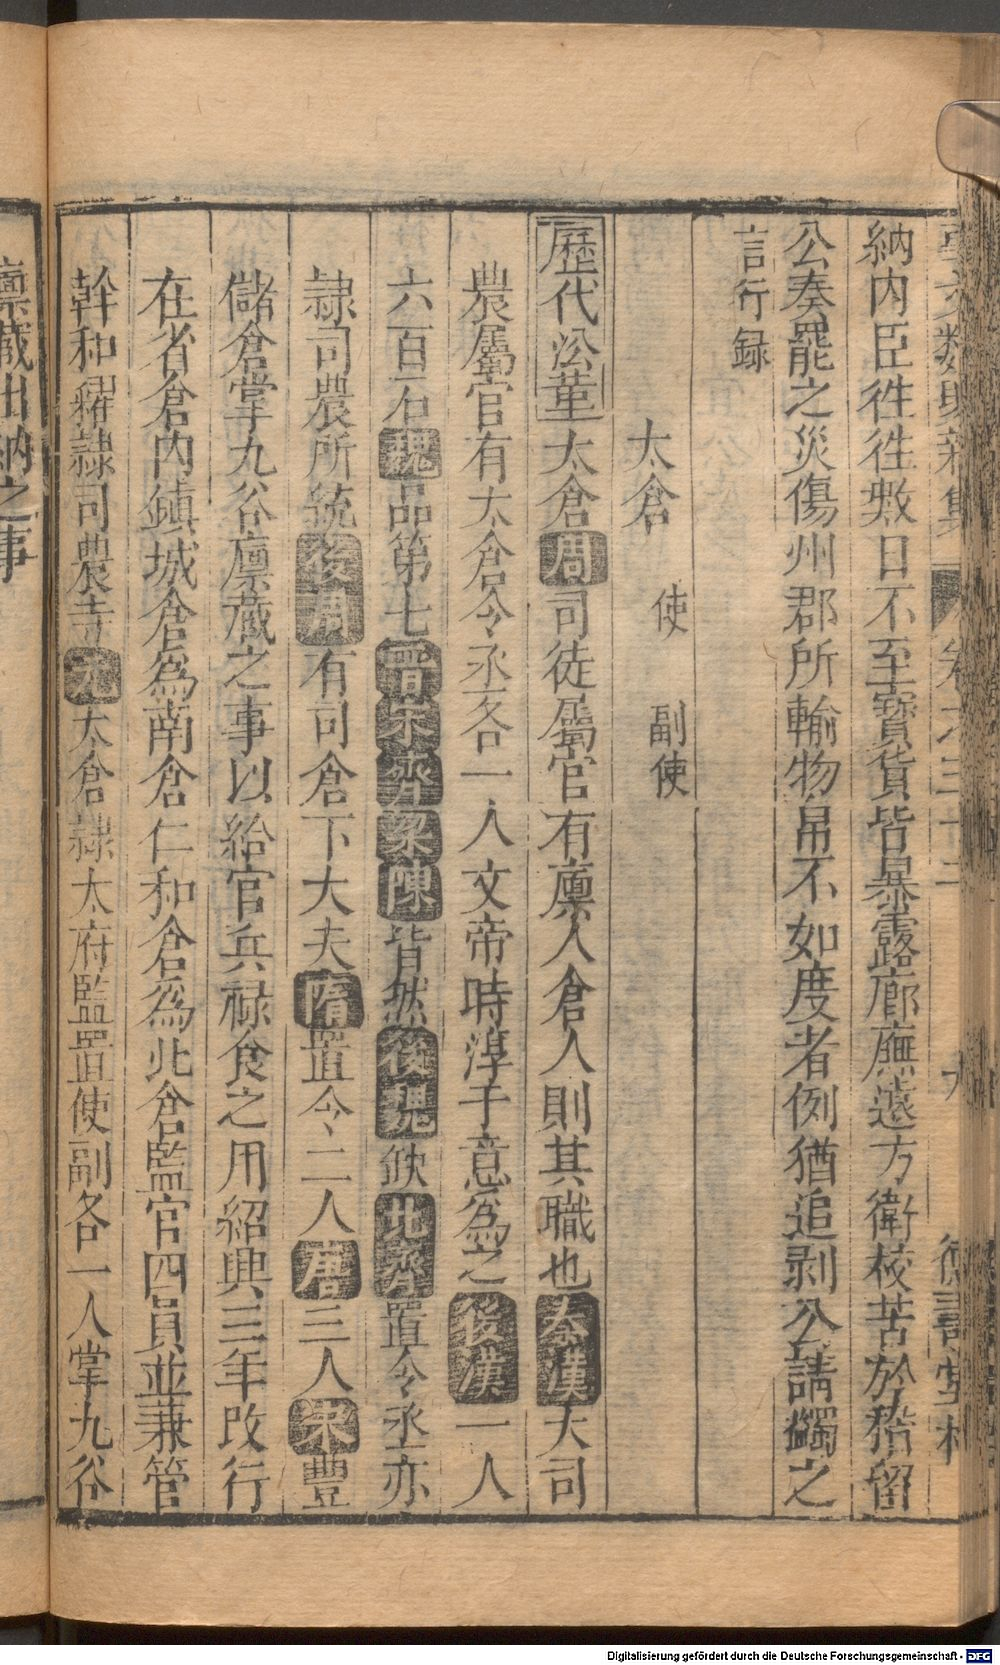 事文類聚新集 卷之三十二 九 德壽堂梓
納内臣徃徃數日不至寶貨皆暴露廊廡遠方衛校苦於稽留
公奏罷之災傷州郡所輸物帛不如度者例猶追剥公請蠲之
言行録
太倉 使 副使
歷代㳂革太倉周司徒屬官有廪人倉人則其職也秦漢大司
農屬官有太倉令丞各一人文帝時淳于意為之後漢一人
六百石魏品第七晉宋齊梁陳皆然後魏缺北齊置令丞亦
隷司農所統後周有司倉下大夫隋置令二人唐三人宋豐
儲倉掌九谷廪藏之事以給官兵禄食之用紹興三年改行
在省倉内鎮城倉為南倉仁和倉為北倉監官四員並兼管
幹和糴隷司農寺元太倉隷太府監置使副各一人掌九谷
廪藏出納之事
Digitalisierung gefördert durch die Deutsche Forschungsgemeinschaft - DFG